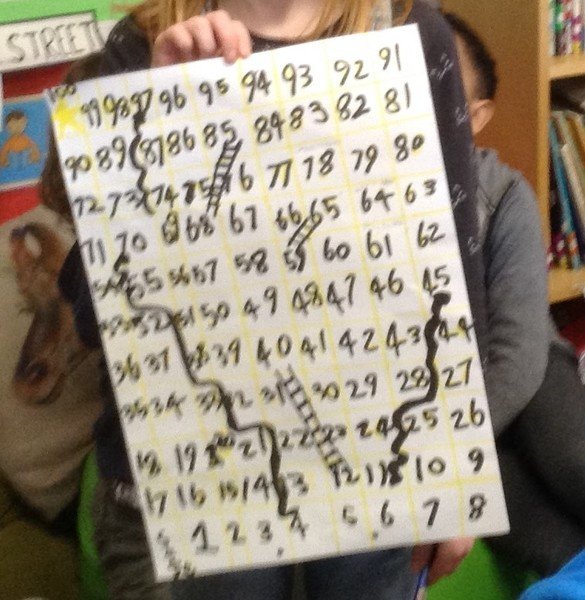 STREET
100 99 98 97 96 95 94 93 92 91
90 89 87 86 85 84 83 82 81
72 73 74 75 76 77 78 79 80
71 70 69 68 67 66 65 64 63
54 55 56 57 58 59 60 61 62
53 52 51 50 49 48 47 46 45
36 37 38 39 40 41 42 43 44
35 34 33 32 31 30 29 28 27
18 19 20 21 22 23 24 25 26
17 16 15 14 13 12 11 10 9
1 2 3 4 5 6 7 8